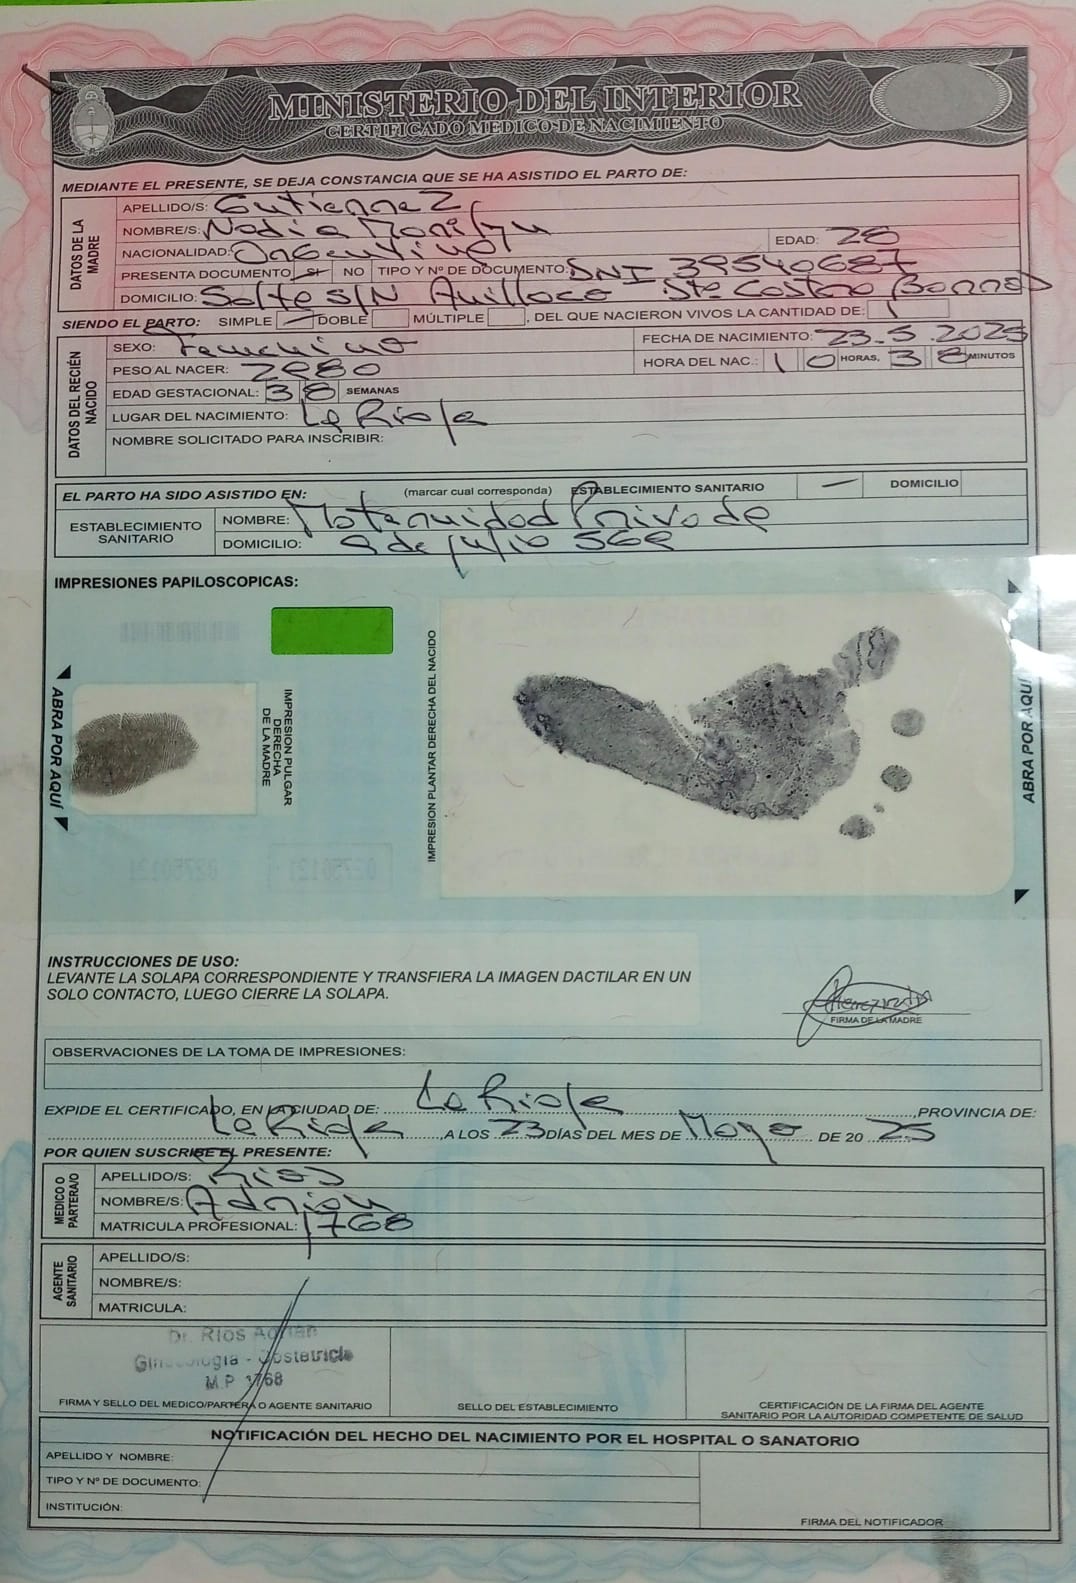 MINISTERIO DEL INTERIOR
CERTIFICADO MEDICO DE NACIMIENTO
MEDIANTE EL PRESENTE, SE DEJA CONSTANCIA QUE SE HA ASISTIDO EL PARTO DE:
DATOS DE LA MADRE
APELLIDO/S: Gutierrez
NOMBRE/S: Nadia
NACIONALIDAD: Argentina EDAD: 28
PRESENTA DOCUMENTO SI NO TIPO Y Nº DE DOCUMENTO: DNI 39540687
DOMICILIO: Salta S/N
SIENDO EL PARTO: SIMPLE DOBLE MÚLTIPLE , DEL QUE NACIERON VIVOS LA CANTIDAD DE: 1
DATOS DEL RECIÉN NACIDO
SEXO: Femenino FECHA DE NACIMIENTO: 23.5.2025
PESO AL NACER: 2980 HORA DEL NAC.: 10 HORAS, 38 MINUTOS
EDAD GESTACIONAL: 38 SEMANAS
LUGAR DEL NACIMIENTO: La Rioja
NOMBRE SOLICITADO PARA INSCRIBIR:
EL PARTO HA SIDO ASISTIDO EN: (marcar cual corresponda) ESTABLECIMIENTO SANITARIO — DOMICILIO
ESTABLECIMIENTO SANITARIO
NOMBRE: Maternidad Privada
DOMICILIO: 9 de julio
IMPRESIONES PAPILOSCOPICAS:
ABRA POR AQUÍ
IMPRESION PULGAR DERECHA DE LA MADRE
IMPRESION PLANTAR DERECHA DEL NACIDO
ABRA POR AQUÍ
INSTRUCCIONES DE USO:
LEVANTE LA SOLAPA CORRESPONDIENTE Y TRANSFIERA LA IMAGEN DACTILAR EN UN
SOLO CONTACTO, LUEGO CIERRE LA SOLAPA.
FIRMA DE LA MADRE
OBSERVACIONES DE LA TOMA DE IMPRESIONES:
EXPIDE EL CERTIFICADO, EN LA CIUDAD DE: La Rioja ,PROVINCIA DE:
La Rioja ,A LOS 23 DÍAS DEL MES DE Mayo DE 20 25
POR QUIEN SUSCRIBE EL PRESENTE:
MEDICO O PARTERA/O
APELLIDO/S: Rios
NOMBRE/S: Adrian
MATRICULA PROFESIONAL: 1768
AGENTE SANITARIO
APELLIDO/S:
NOMBRE/S:
MATRICULA:
Dr. Rios Adrian
Ginecologia - Obstetricia
M.P 1768
FIRMA Y SELLO DEL MEDICO/PARTERA O AGENTE SANITARIO
SELLO DEL ESTABLECIMIENTO
CERTIFICACIÓN DE LA FIRMA DEL AGENTE
SANITARIO POR LA AUTORIDAD COMPETENTE DE SALUD
NOTIFICACIÓN DEL HECHO DEL NACIMIENTO POR EL HOSPITAL O SANATORIO
APELLIDO Y NOMBRE:
TIPO Y Nº DE DOCUMENTO:
INSTITUCIÓN:
FIRMA DEL NOTIFICADOR